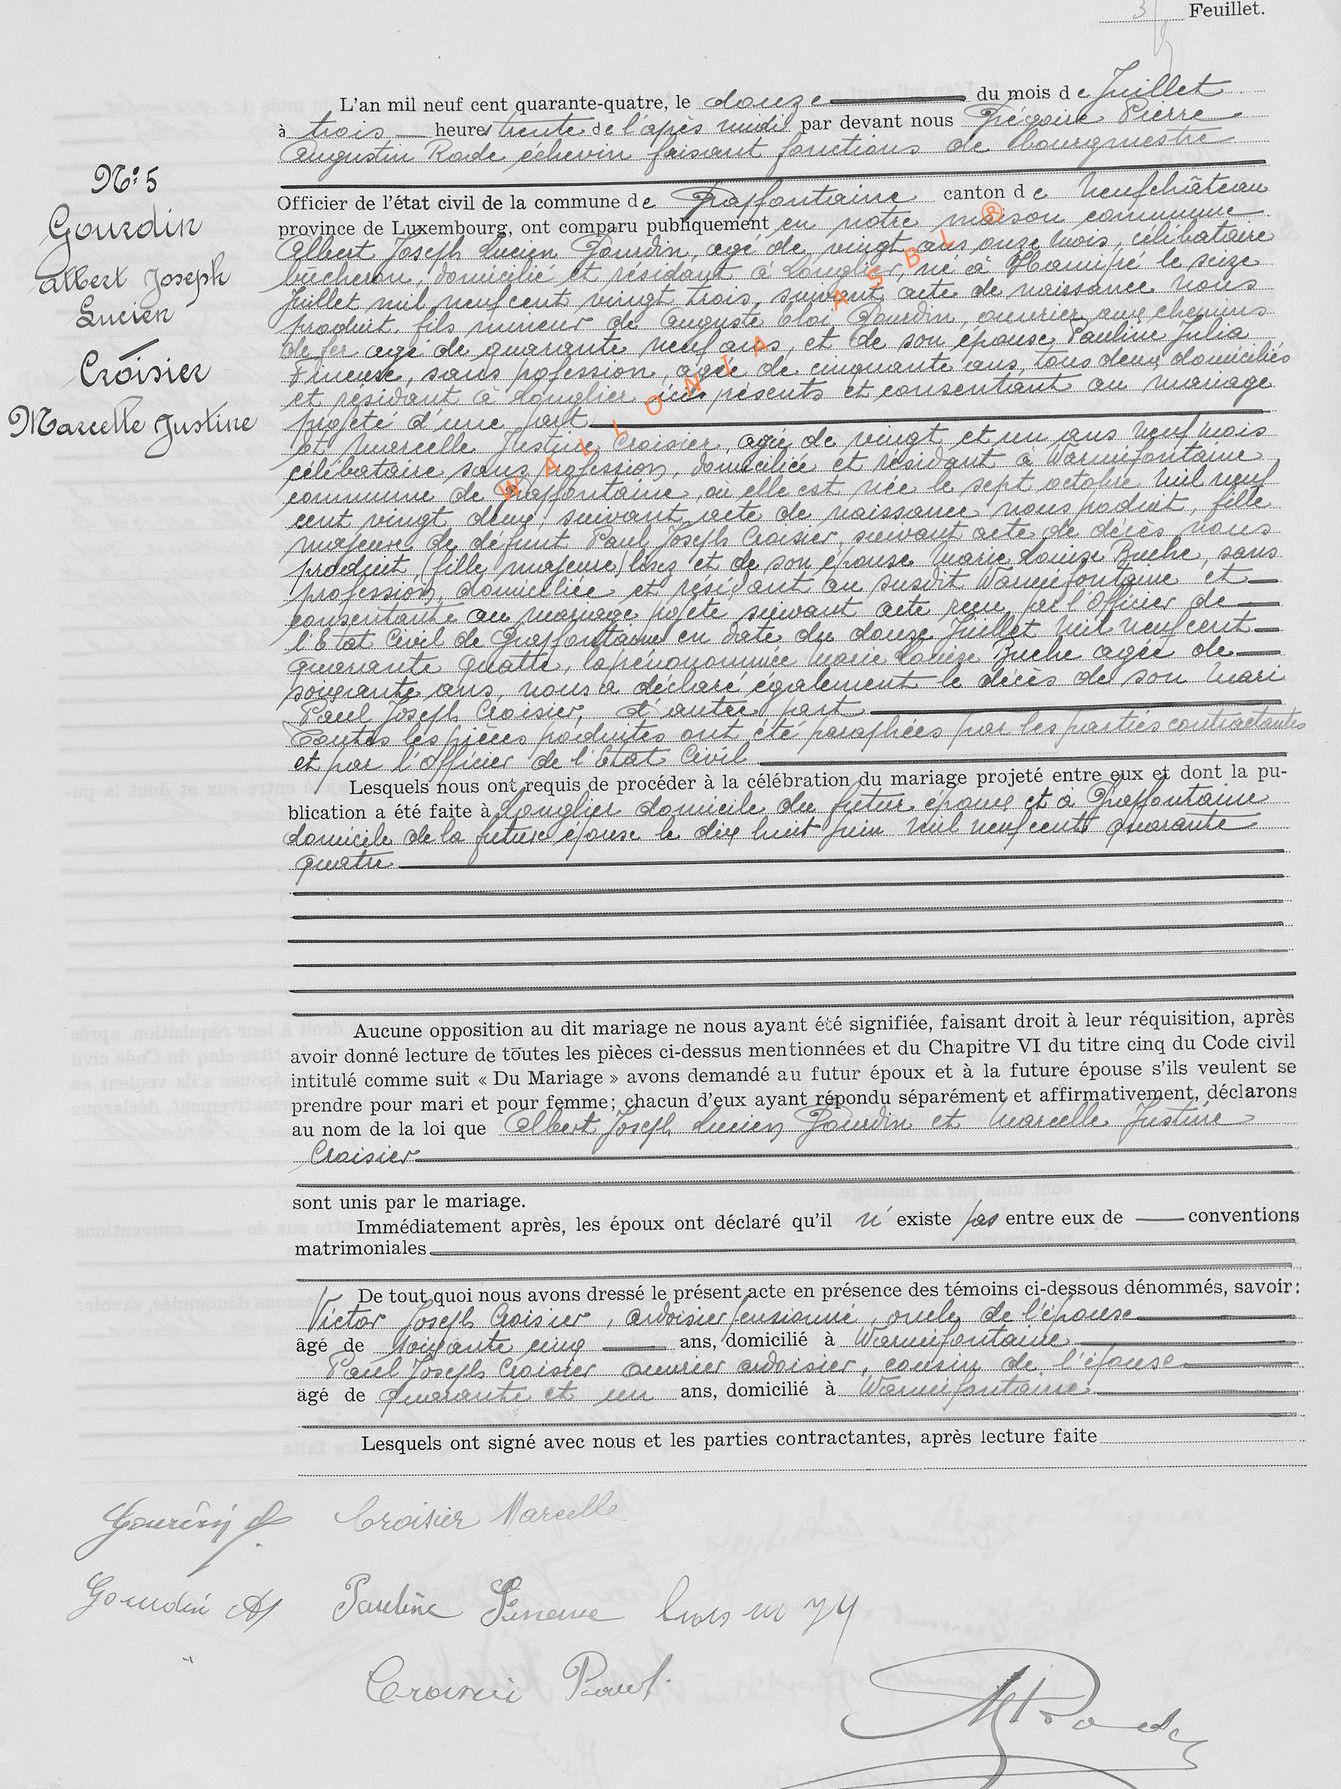 Feuillet.
L'an mil neuf cent quarante-quatre, le douze du mois de Juillet
à trois heures trente de l'après midi par devant nous Grégoire Pierre
Augustin Rode échevin faisant fonctions de bourgmestre
N° 5
Officier de l'état civil de la commune de Graffontaine canton de Neufchâteau
Gourdin
province de Luxembourg, ont comparu publiquement en notre maison commune
Albert Joseph Lucien Gourdin, agé de vingt ans onze mois, célibataire
Albert Joseph
bûcheron, domicilié et résidant à Longlier, né à Hamipré le seize
Lucien
Juillet mil neuf cent vingt trois, suivant acte de naissance nous
produit, fils mineur de Auguste Eloi Gourdin, ouvrier aux chemins
de fer agé de quarante neuf ans, et de son épouse Pauline Julia
Croisier
sans profession, agée de cinquante ans, tous deux domiciliés
et résidant à Longlier ici présents et consentant au mariage
Marcelle Justine
projeté d'une part
et Marcelle Justine Croisier, agée de vingt et un ans neuf mois
célibataire sans profession, domiciliée et résidant à Warmifontaine
commune de Graffontaine, où elle est née le sept octobre mil neuf
cent vingt deux, suivant acte de naissance nous produit, fille
majeure de défunt Paul Joseph Croisier, suivant acte de décès nous
produit, (fille majeure) lisez et de son épouse Marie Louise Zuche, sans
profession, domiciliée et résidant au susdit Warmifontaine et
consentante au mariage projeté suivant acte reçu par l'Officier de
l'Etat Civil de Graffontaine en date du douze Juillet mil neuf cent
quarante quatre, la prénommée Marie Louise Zuche agée de
soixante ans, nous a déclaré également le décès de son mari
Paul Joseph Croisier, d'autre part
Toutes les pièces produites ont été paraphées par les parties contractantes
et par l'Officier de l'Etat Civil
Lesquels nous ont requis de procéder à la célébration du mariage projeté entre eux et dont la pu-
blication a été faite à Longlier domicile du futur époux et à Graffontaine
domicile de la future épouse le dix huit juin mil neuf cent quarante
quatre
Aucune opposition au dit mariage ne nous ayant été signifiée, faisant droit à leur réquisition, après
avoir donné lecture de toutes les pièces ci-dessus mentionnées et du Chapitre VI du titre cinq du Code civil
intitulé comme suit « Du Mariage » avons demandé au futur époux et à la future épouse s'ils veulent se
prendre pour mari et pour femme; chacun d'eux ayant répondu séparément et affirmativement, déclarons
au nom de la loi que Albert Joseph Lucien Gourdin et Marcelle Justine
Croisier
sont unis par le mariage.
Immédiatement après, les époux ont déclaré qu'il n'existe pas entre eux de conventions
matrimoniales
De tout quoi nous avons dressé le présent acte en présence des témoins ci-dessous dénommés, savoir:
Victor Joseph Croisier, ardoisier pensionné, oncle de l'épouse
âgé de soixante cinq ans, domicilié à Warmifontaine
Paul Joseph Croisier ouvrier ardoisier, cousin de l'épouse
âgé de quarante et un ans, domicilié à Warmifontaine
Lesquels ont signé avec nous et les parties contractantes, après lecture faite
Gourdin A. Croisier Marcelle
Gourdin A Pauline
Croisier Paul.
WALLONIA ASBL ®